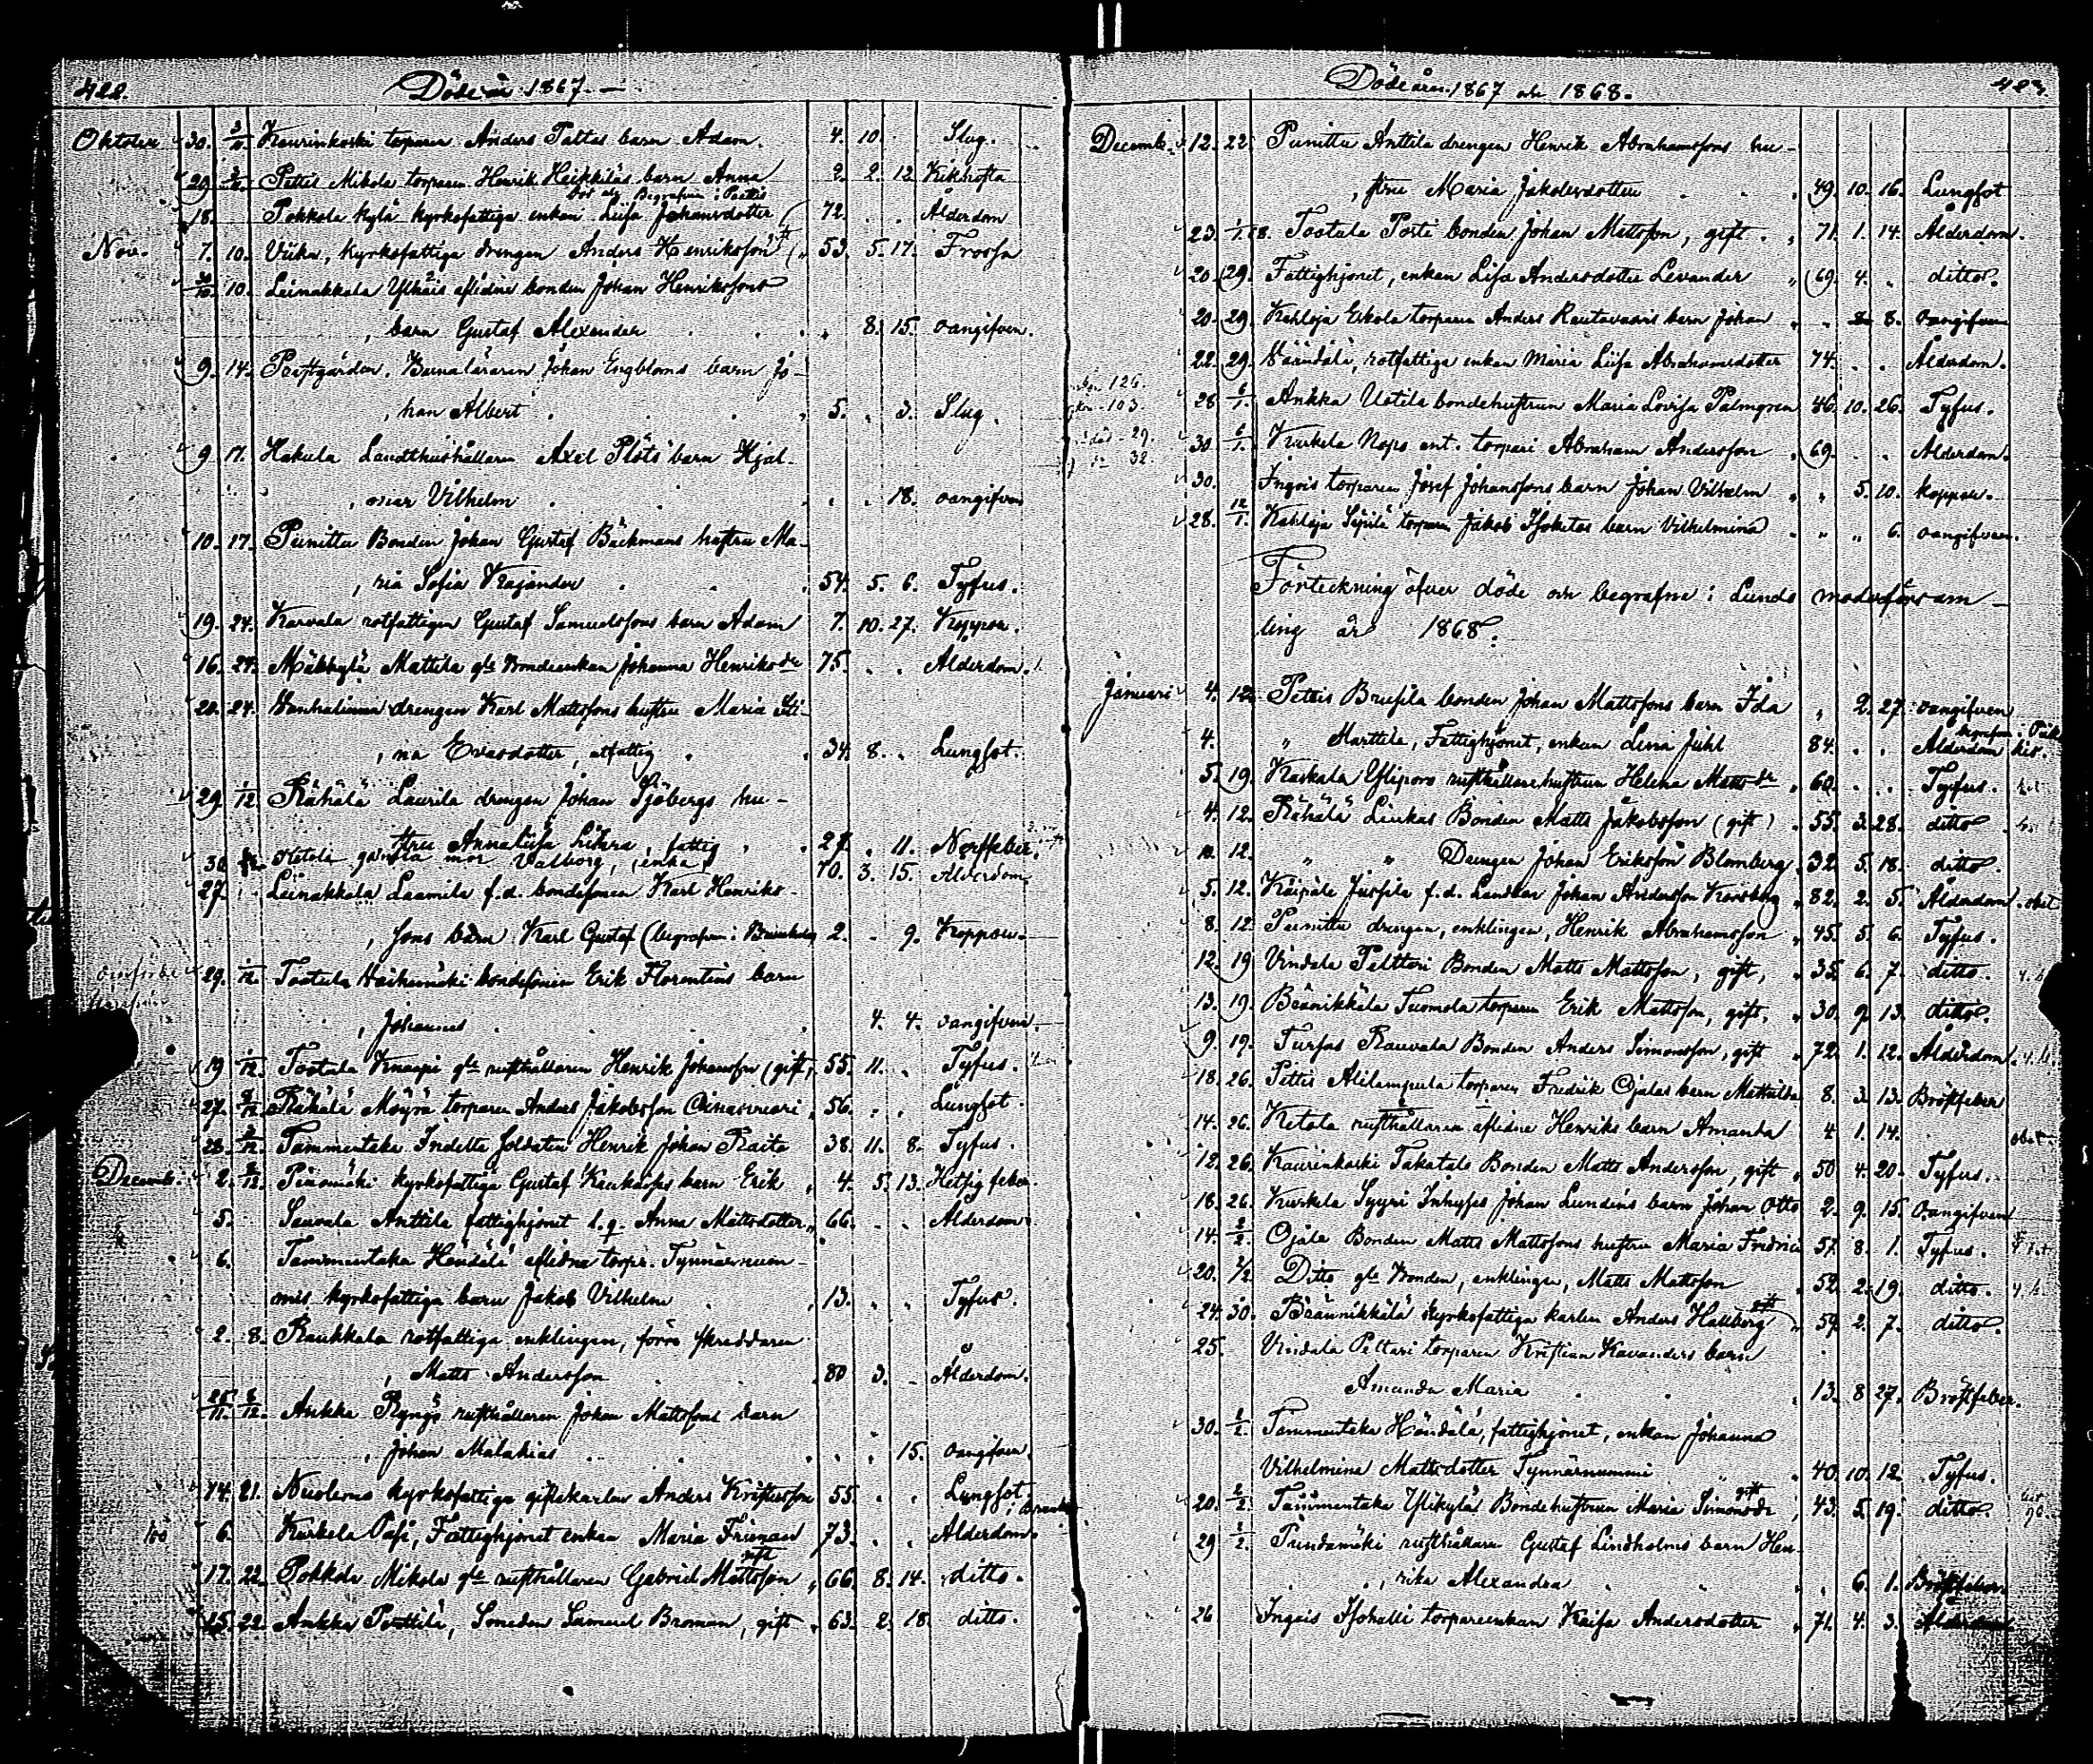 422. Döde år 1867.
Oktober 30. 3/11. Kaurinkoski torparen Anders Tattas barn Adam. 4. 10. Slag.
29 3/11. Pettis Mikola torparen Henrik Heikkiläs barn Anna 2. 2. 12 Kikhosta
begrafven i Pöytis
18. Pokkola kylä kyrkofattiga enkan Liisa Johansdotter 72. Ålderdom
Nov. 7. 10. kyrkofattiga drengen Anders Henriksson 53. 5. 17. Frossa
30/10. 10. Leinakkala Ylhäis aflidne bonden Johan Henrikssons
barn Gustaf Alexander 8. 15. oangifven.
9. 14. Prestgården, Barnaläraren Johan Engbloms barn Jo-
han Albert 5. 3. Slag.
9 17. Hakula Landthushållaren Axel Plöts barn Hjal-
mar Vilhelm 18. oangifven
10. 17. Punittu Bonden Johan Gustaf Bäckmans hustru Ma-
ria Sofia Krajander 54. 5. 6. Tyfus.
19. 24. Karvala rotfattigen Gustaf Samuelssons barn Adam 7. 10. 27. Koppor.
16. 24. Mäkkylä Mattila gle Bondeenkan Johanna Henriksdr 75. Ålderdom.
20. 24. Vanhalinna drengen Karl Mattssons hustru Maria Sti-
na Evasdotter, utfattig 34. 8. Lungsot.
29. 1/12. Rähälä Laurila drengen Johan Sjöbergs hu-
stru Annaliisa, fattig 27. 11. Nerffeber.
30. Ketola gamla mor Valborg, enka 70. 3. 15. Ålderdom
27. Leinakkala Laamila f.d. bondesonen Karl Henriks-
sons barn Karl Gustaf (begrafven i 2. 9. Koppor.
29. 1/12. Tostula Haihunäski bondesonen Erik Florentins barn
Johannes 4. 4. oangifven.
19 1/12. Tostula Knaapi gle rusthållaren Henrik Johansson (gift) 55. 11. Tyfus.
27. 2/12. Rähälä Möyrä torparen Anders Jakobsson 56. Lungsot.
28. 2/12. Tammentaka Indelta Soldaten Henrik Johan Raito 38. 11. 8. Tyfus.
Decemb. 2. Piiromäki kyrkofattiga Gustaf barn Erik 4. 5. 13. Hetsig feber.
5. Sauvala Anttila fattighjonet l.q. Anna Mattsdotter 66. Ålderdom.
6. Tammentaka Händälä aflidna torp. Tynnärnum-
mis kyrkofattiga barn Jakob Vilhelm 13. Tyfus.
2. 8. Raukkala rotfattiga enklingen, förre skräddaren
Matts Andersson 80 3. Ålderdom.
25/11. 8/12. Ankka Rynys rusthållaren Johan Mattssons barn
Johan Malakias 15. oangifven.
14. 21. Nuolemo kyrkofattiga giftekarlen Anders Kristersson 55. Lungsot.
6. Kurkela Pasi, Fattighjonet enkan Maria Friman 73. Ålderdom.
17. 22. Pokkola Mikola gle rusthållaren Gabriel Mattsson gift 66. 8. 14. ditto.
15. 22. Ankka Perttilä, Smeden Samuel Broman, gift 63. 2. 18. ditto.
Döde åren 1867 och 1868. 423.
Decemb. 12. 22. Punittu Anttila drengen Henrik Abrahamssons hu-
stru Maria Jakobsdotter 49. 10. 16. Lungsot
23. 1/1 68. Tostula Posti bonden Johan Mattsson, gift. 71. 1. 14. Ålderdom.
20. 29. Fattighjonet, enkan Lisa Andersdotter Levander 69. 4. ditto.
20. 29. Kahloja Eskola torparen Anders Rautavaaris barn Johan 8. oangifven
22. 29. rotfattiga enkan Maria Liisa Abrahamsdotter 74. Ålderdom.
28 6/1. Ankka Uotila bondehustrun Maria Lovisa Palmgren 46. 10. 26. Tyfus.
30. 6/1. Kurkela Nops ent. torpari Abraham Andersson 69. Ålderdom.
30. Ingois torparen Josef Johanssons barn Johan Vilhelm 5. 10. koppor.
28. 12/1. Kahloja Seppilä torparen Jakob Isoketos barn Vilhelmina 6. oangifven.
Förteckning öfver döde och begrafne i Lundo moderförsam-
ling år 1868.
Januari 4. 12. Pettis Brusila bonden Johan Mattssons barn Ida 2. 27. oangifven
4. " Marttila, Fattighjonet, enkan Lena Juhl 84. Ålderdom
5. 19. Kaskala Yliporo rusthållarehustrun Helena Mattsdr 60. Tyfus.
4. 12. Rähälä Liukas Bonden Matts Jakobsson (gift) 55. 3. 28. ditto
10. 12. " " Drengen Johan Eriksson Blomberg 32. 5. 18. ditto.
5. 12. Käipälä Jussila f.d. Landbon Johan Andersson 82. 2. 5. Ålderdom.
8. 12. Punittu drengen, enklingen, Henrik Abrahamsson 45. 5. 6. Tyfus.
12. 19 Vindala Pelttari Bonden Matts Mattsson, gift, 35. 6. 7. ditto.
13. 19. Bränikkälä Tuomola torparen Erik Mattsson, gift, 30. 9. 13. ditto.
9. 19. Turfas Rauvala Bonden Anders Simonsson, gift 72. 1. 12. Ålderdom.
18. 26. Pettis Alilampula torparen Fredrik Ojalas barn Mathilda 8. 3. 13. Bröstfeber
14. 26. Ketola rusthållaren aflidne Henriks barn Amanda 4 1. 14.
12. 26. Kaurinkoski Takatalo Bonden Matts Andersson, gift 50 4. 20. Tyfus.
18. 26. Kurkela Syyri Inhyses Johan Lundens barn Johan Otto 2. 9. 15. Oangifven
14. 2/2. Ojala Bonden Matts Mattssons hustru Maria Fredrici 57. 8. 1. Tyfus.
20. 2/2 Ditto gle Bonden, enklingen, Matts Mattsson 52. 2. 19. ditto.
24. 30. Bräunikkälä kyrkofattiga karlen Anders Hallberg gift 59. 2. 7. ditto.
25. Vindala Peltari torparen Kristian Kavanders barn
Amanda Maria 13. 8 27. Bröstfeber.
30. 2/2. Tammentaka Händälä, fattighjonet, enkan Johanna
Vilhelmina Mattsdotter Tynnärnummi 40. 10. 12. Tyfus.
20. 2/2. Tammentaka Ylikylä Bondehustrun Maria Simonsdr gift 43. 5. 19. ditto.
29 2/2. Pundamäki rusthållaren Gustaf Lindholms barn Hen-
rika Alexandra 6. 1. Bröstfeber.
26 Ingois Isohalli torpareenkan Kaisa Andersdotter 71. 4. 3. Ålderdom